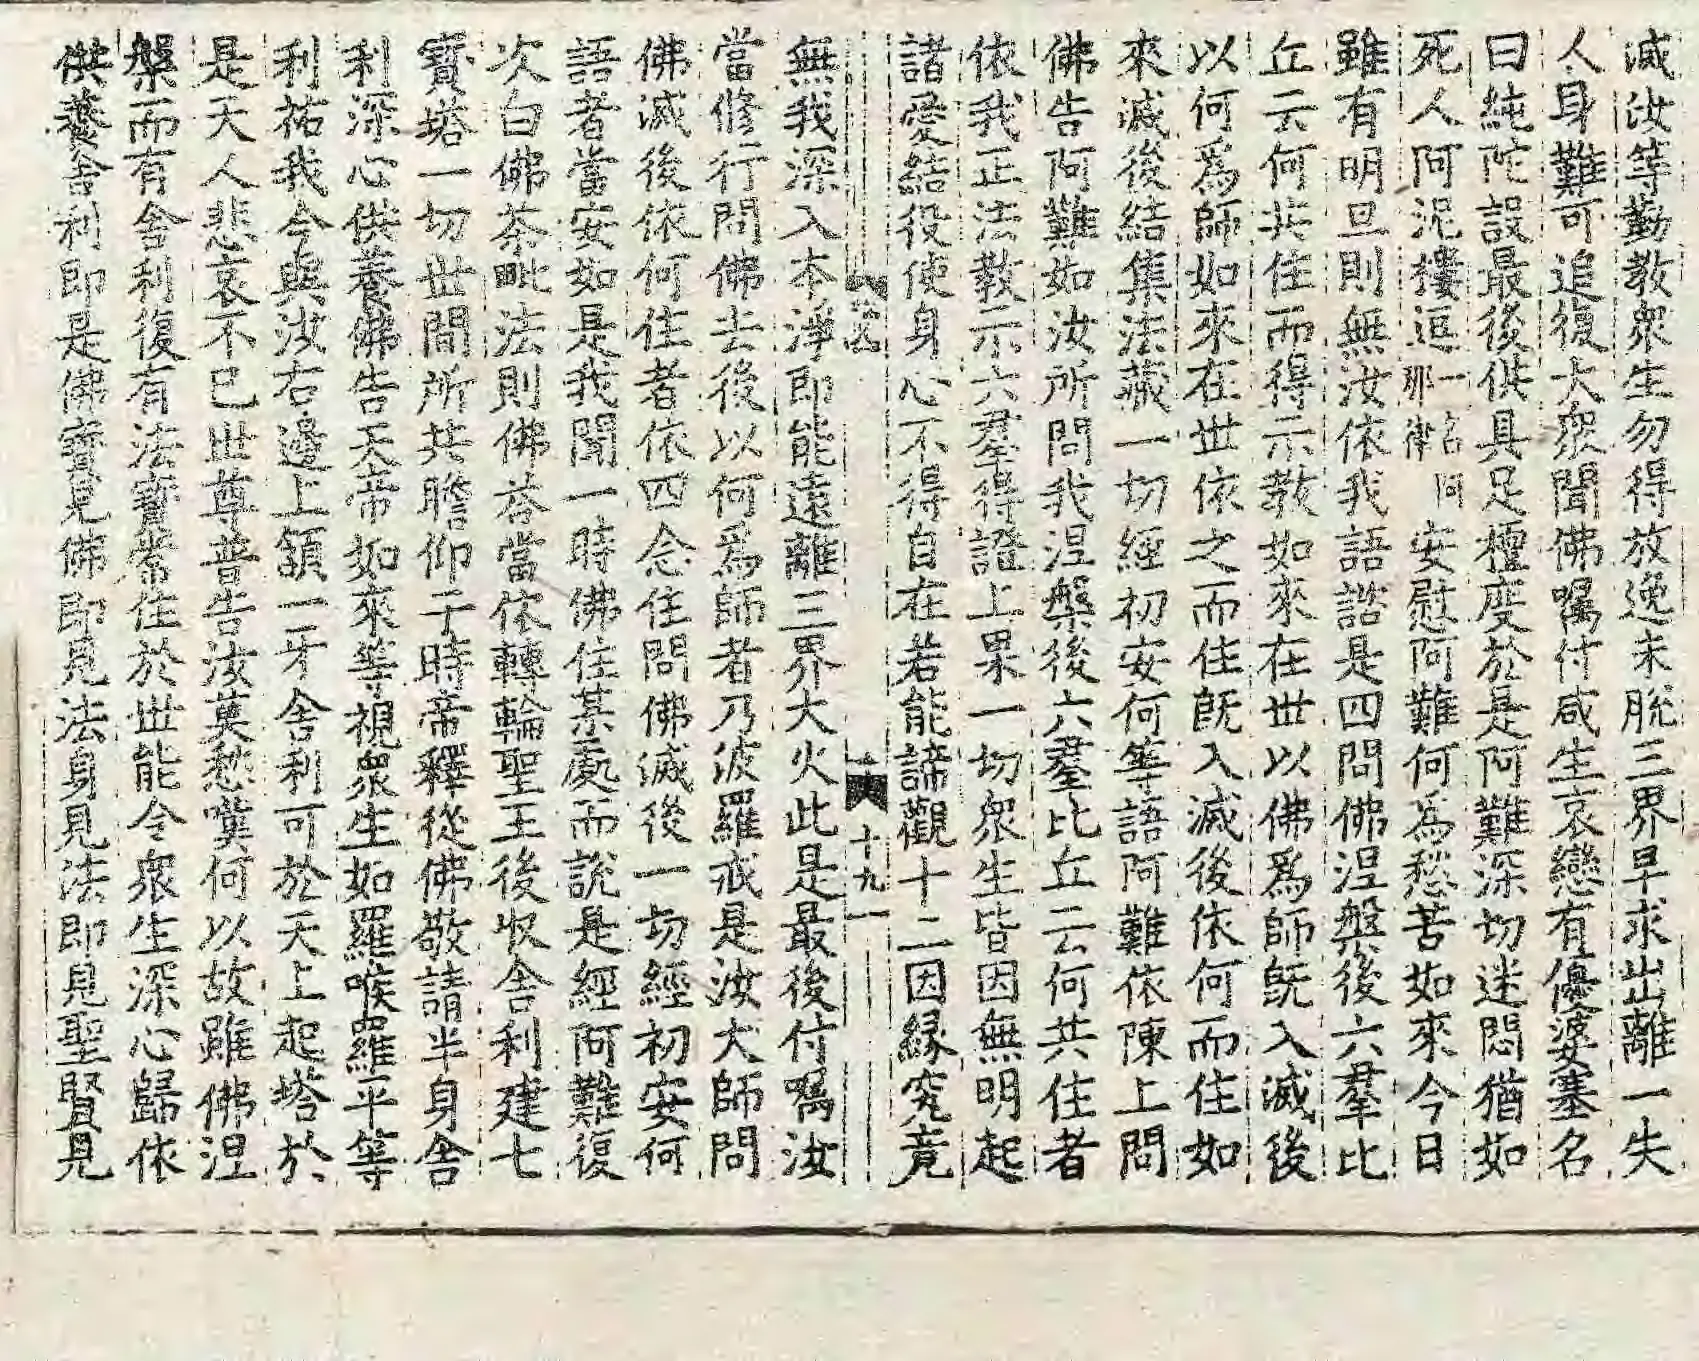 滅汝等勤教衆生勿得放逸未脫三界早求出離一失
人身難可追復大衆聞佛囑付咸生哀戀有優婆塞名
曰純陀設最後供具足檀度於是阿難深切迷悶猶如
死人阿泥摟逗一名阿那律安慰阿難何爲愁苦如來今日
雖有明旦則無汝依我語諮是四問佛涅槃後六羣比
丘云何共住而得示教如來在世以佛爲師旣入滅後
以何爲師如來在世依之而住旣入滅後依何而住如
來滅後結集法藏一切經初安何等語阿難依陳上問
佛告阿難如汝所問我涅槃後六羣比丘云何共住者
依我正法教示六羣得證上果一切衆生皆因無明起
諸愛結役使身心不得自在若能諦觀十二因緣究竟
十九
無我深入本淨即能遠離三界大火此是最後付囑汝
當修行問佛去後以何爲師者乃波羅戒是汝大師問
佛滅後依何住者依四念住問佛滅後一切經初安何
語者當安如是我聞一時佛住某處而說是經阿難復
次白佛茶毗法則佛荅當依轉輪聖王後收舍利建七
寶塔一切世間所共瞻仰于時帝釋從佛敬請半身舍
利深心供養佛告天帝如來等視衆生如羅喉羅平等
利祐我今與汝右邊上頷一牙舍利可於天上起塔於
是天人悲哀不已世尊普告汝莫愁嘆何以故雖佛涅
槃而有舍利復有法寶常住於世能令衆生深心歸依
供養舍利即是佛寶見佛即見法身見法即見聖賢見